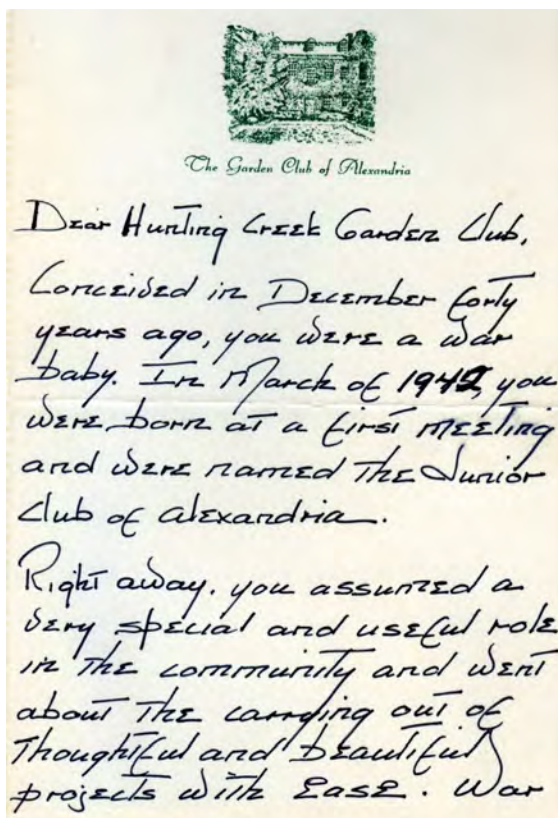 The Garden Club of Alexandria
Dear Hunting Creek Garden Club,
Conceived in December forty
years ago, you were a war
baby. In March of 1942, you
were born at a first meeting
and were named the Junior
Club of Alexandria.
Right away, you assumed a
very special and useful role
in the community and went
about the carrying out of
thoughtful and beautiful
projects with ease. War